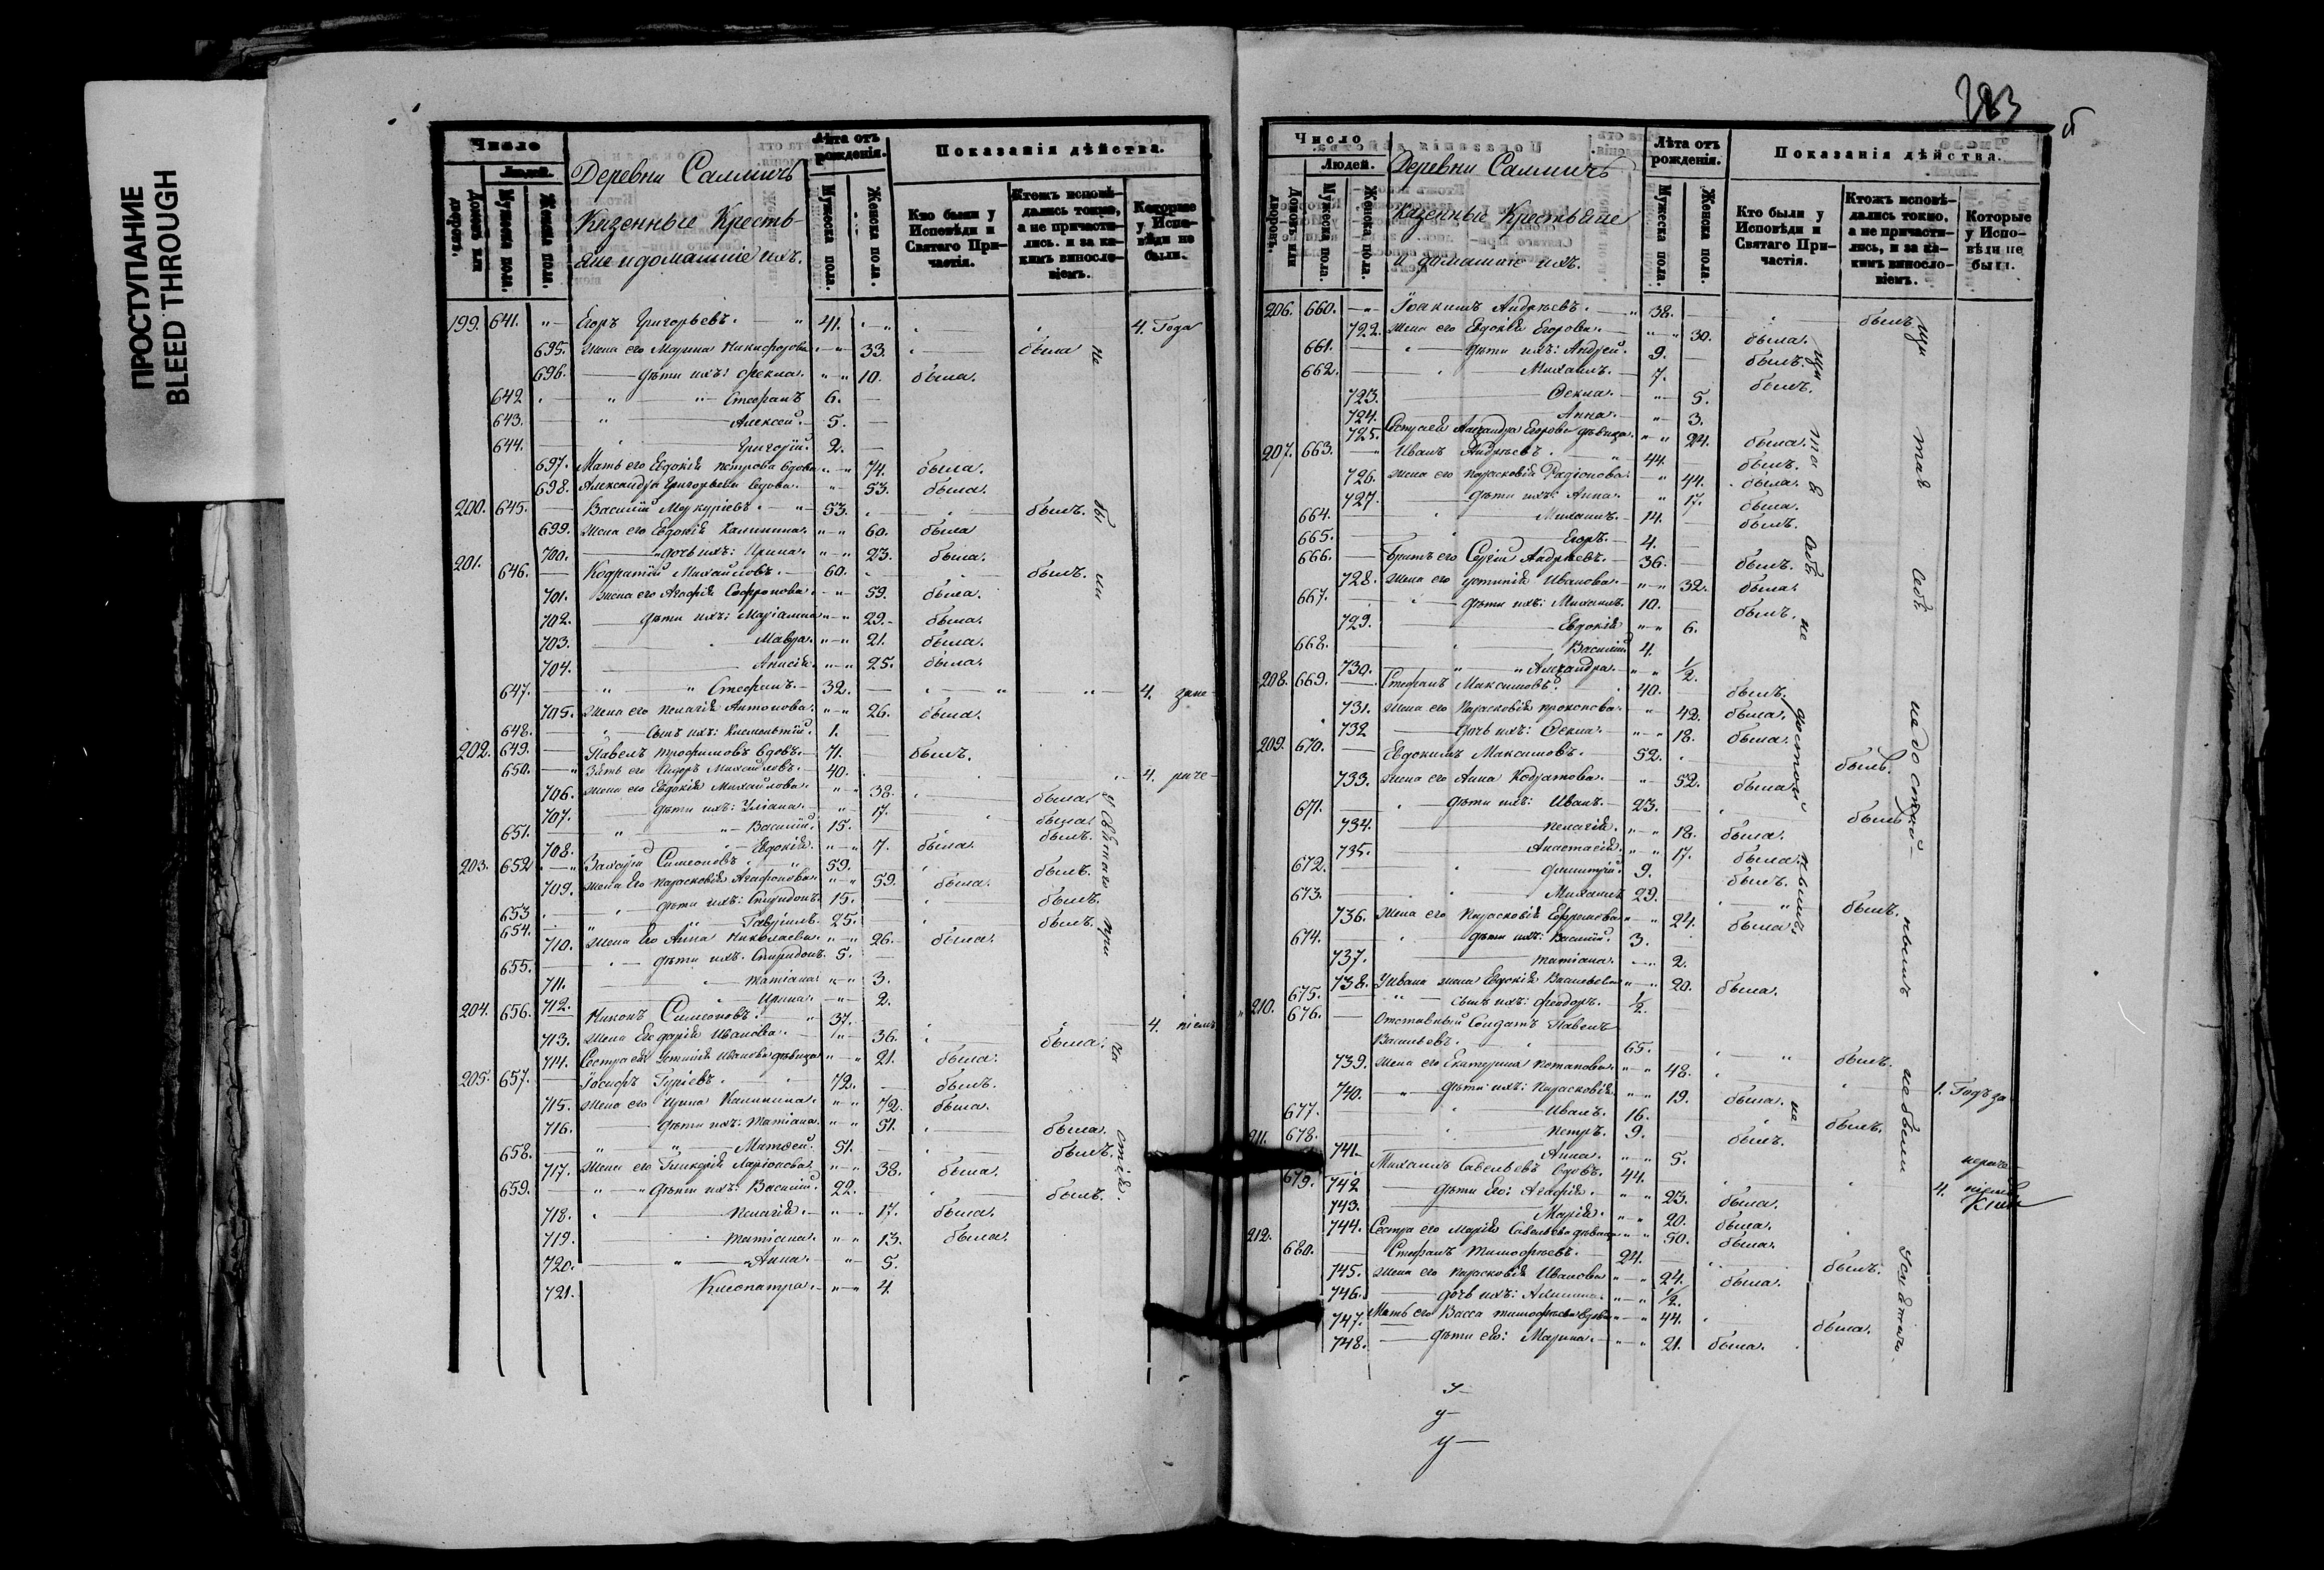 ПРОСТУПАНИЕ
BLEED THROUGH
Число
Людей.
Домовъ или дворовъ.
Мужеска пола.
Женска пола.
Деревни
Казенные Кресть-
яне и домашние ихъ.
Лѣта отъ рожденія.
Мужеска пола.
Женска пола.
Показанія дѣйства.
Кто были у Исповѣди и Святаго При-частія.
Ктожъ исповѣ-дались токмо, а не причасти-лись. и за ка-кимъ виносло-віемъ.
Которые у Испо-вѣди не были.
199. 641. Егоръ Григорьевъ. 41. 4. Года
695. Жена его Марина Никифорова 33. была
696. дѣти ихъ: Фекла. 10. была.
642 Стефанъ 6.
643. Алексей. 5.
644. Григорій. 2.
697. Мать его Евдокія Петрова вдова 74. была.
698. Александра Григорьева вдова. 53. была.
200. 645. Василій Меркуріевъ. 53. былъ.
699. Жена его Евдокія Калинина. 60. была
700. дочь ихъ: Ирина. 23. была.
201. 646. Кодратій Михайловъ. 60. былъ.
701. Жена его Агафія Софронова. 59. была.
702. дѣти ихъ: Маріамна 29. была.
703. Мавра. 21. была.
704. Анисія. 25. была.
647. Стефанъ. 32. 4. зане
705. Жена его Пелагія Антонова. 26. была.
648. сынъ ихъ: Климентій. 1.
202. 649. Павелъ Трофимовъ вдовъ. 71. былъ.
650. Зять его Сидоръ Михайловъ. 40. 4. раче
706. Жена его Евдокія Михайлова. 38. была
707. дѣти ихъ: Уліана. 17. была.
651. Василій. 15. былъ.
708. Евдокія. 7. была.
203. 652 Захарій Симеоновъ 59. былъ.
709. Жена его Парасковія Агафонова. 59. была.
653 дѣти ихъ: Спиридонъ. 15. былъ.
654. Гавріилъ. 25. былъ.
710. Жена его Анна Николаева. 26. была.
655. дѣти ихъ. Спиридонъ. 5.
711. Татіана 3.
712. Ирина. 2.
204. 656. Никонъ Симеоновъ. 37. 4. ніемъ
713. Жена его Дарія Иванова. 36. была.
714. Сестра ея Устинія Иванова дѣвица 21. была.
205. 657. Іосифъ Гуріевъ. 72. былъ.
715. Жена его Ирина Калинина. 72. была.
716. дѣти ихъ: Татіана. 51. была.
658. Матѳей. 51. былъ.
717. Жена его Гликерія Ларіонова. 38. была.
659. дѣти ихъ: Василій. 22. былъ.
718. Пелагія. 17. была.
719. Татіана. 13. была.
720. Анна. 5.
721. Клеопатра. 4.
не бы ли у Святаго при ча стія.
283
Число
Людей.
Домовъ или дворовъ.
Мужеска пола.
Женска пола.
Деревни
Казенные Крестьяне
и домашние ихъ.
Лѣта отъ рожденія.
Мужеска пола.
Женска пола.
Показанія дѣйства.
Кто были у Исповѣди и Святаго При-частія.
Ктожъ исповѣ-дались токмо, а не причасти-лись, и за ка-кимъ виносло-віемъ.
Которые у Испо-вѣди не были.
206. 660. Іоакимъ Андреевъ. 38. былъ
722. Жена его Евдокія Егорова. 30. была.
661. дѣти ихъ: Андрей. 9. былъ.
662. Михаилъ. 7. былъ.
723. Ѳекла. 5.
724. Анна. 3.
725. Сестра ея Александра Егорова дѣвица. 24. была.
207. 663. Иванъ Андреевъ. 44. былъ.
726. Жена его Парасковія Радіонова. 44. была.
727. дѣти ихъ: Анна. 17. была.
664. Михаилъ. 14. былъ.
665. Егоръ. 4.
666. Братъ его Сергій Андреевъ. 36. былъ.
728. Жена его Устинія Иванова. 32. была.
667. дѣти ихъ: Михаилъ. 10. былъ.
729. Евдокія 6.
668. Василій 4.
730. Александра. 1/2.
208. 669. Стефанъ Максимовъ. 40. былъ.
731. Жена его Парасковія Прокопова. 42. была.
732 дочь ихъ: Ѳекла. 18. была.
209. 670. Евдокимъ Максимовъ. 52. былъ.
733. Жена его Анна Кодратова. 52. была
671. дѣти ихъ: Иванъ. 23. былъ
734. Пелагія. 18. была.
735. Анастасія. 17. была.
672. Димитрій. 9. былъ.
673. Михаилъ 29. былъ.
736. Жена его Парасковія Ефремова 24. была.
674. дѣти ихъ: Василій. 3.
737. Татіана. 2.
738. У Ивана жена Евдокія Васильева 20. была.
675. сынъ ихъ: Феодоръ. 1/2.
210. 676. Отставный Солдатъ Павелъ
Васильевъ. 65. былъ.
739. Жена его Екатерина Потапова. 48. 1. Годъ за
740. дѣти ихъ: Парасковія 19. была.
677. Иванъ. 16. былъ.
678. Петръ. 9. былъ.
741. Анна. 5.
211. 679. Михаилъ Савельевъ вдовъ. 44. 4.
742 дѣти его: Агафія. 23. была.
743. Марія. 20. была.
744. Сестра его Марія Савельева дѣвица 50. была.
212. 680. Стефанъ Тимофеевъ. 24. былъ.
745. Жена его Парасковія Иванова 24. была.
746. дочь ихъ: 1/2.
747. Мать его Васса Тимофеева вдова 44. была.
748. дѣти ея: Марина. 21. была.